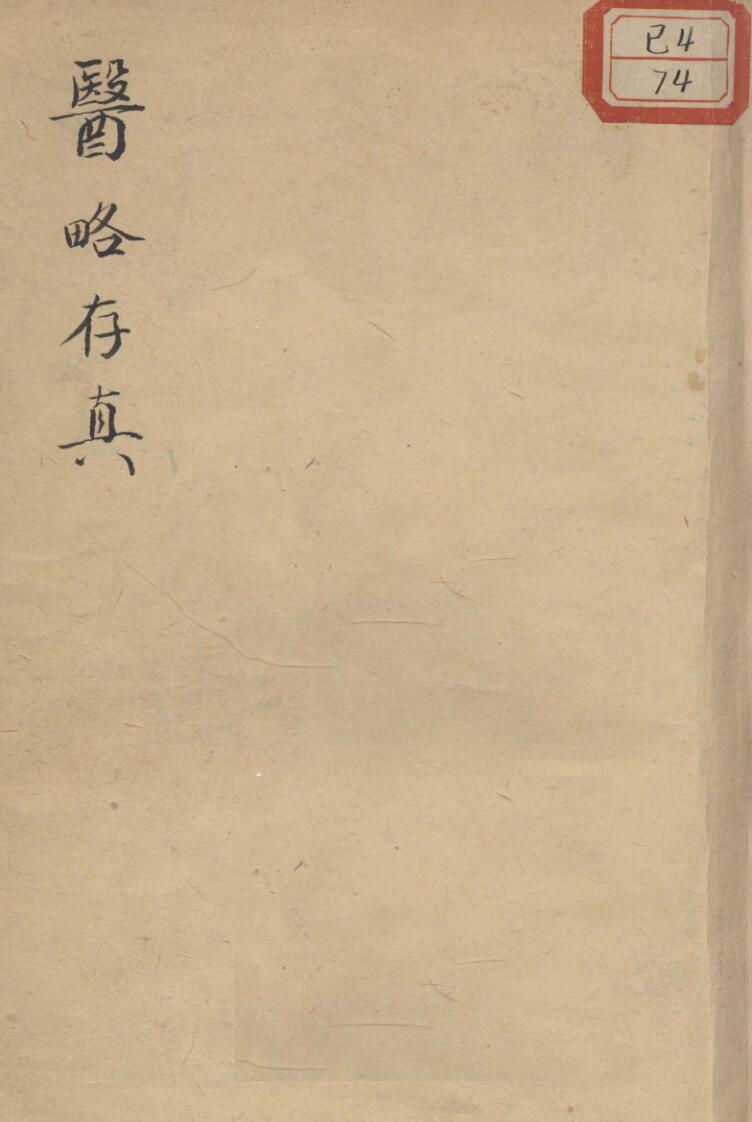 醫略存真
已4
74